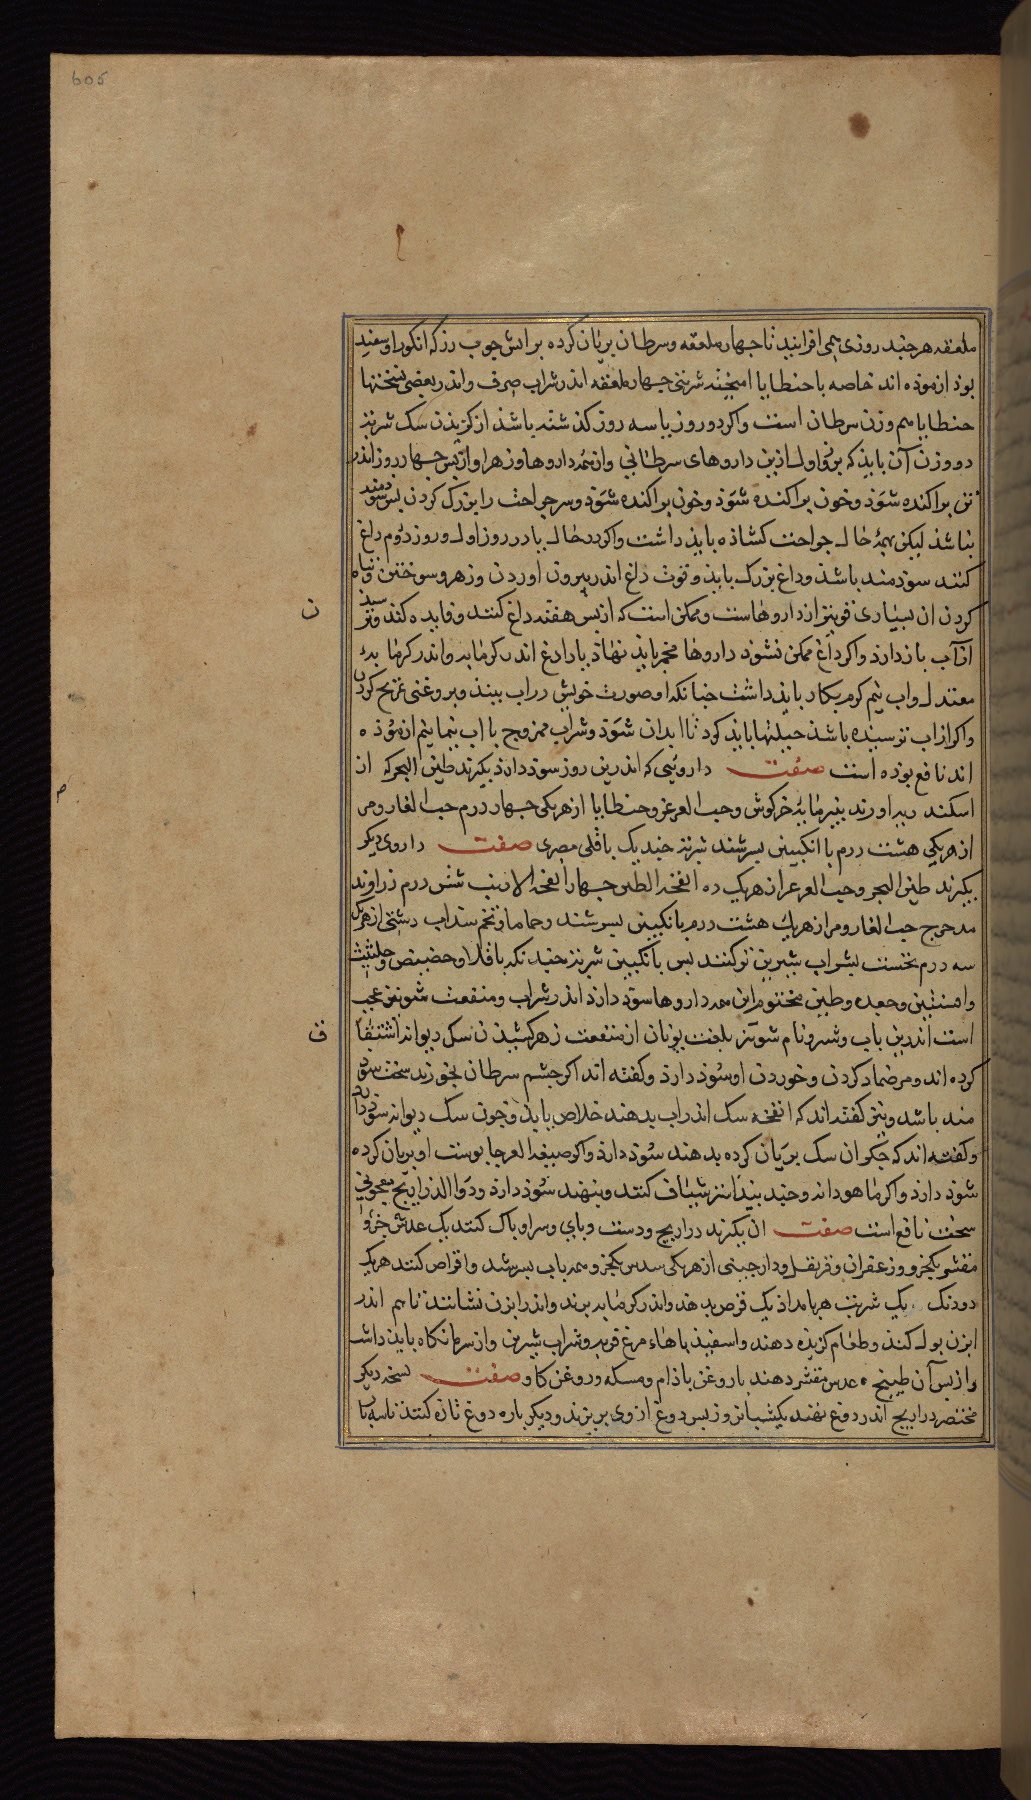 605
ملعقه هر چند روزی همی افزایند تا چهار ملعقه و سرطان بریان کرده بر آتش چوب رز که انکور او سفید
بوذ ازموذه اند خاصه با حنطایا امیخته شربتی چهار ملعقه اندر شراب صرف و اندر بعضی نسختها
حنطایا هم وزن سرطان است و اکر دو روز یا سه روز کذشته باشذ از کزیذن سک شربت
دو وزن آن بایذ که بروز اول ازین داروهای سرطانی و از همه داروها و زهر او از پس چهار روز اندر
تن براکنده شوذ و خون براکنده شوذ و خون براکنده شوذ و سر جراحت را بزرک کردن بس سودمند
نباشذ لیکن بهمه حال جراحت کشاذه بایذ داشت و اکر در حال یا در روز اول و روز دوم داغ
کنند سوذمند باشذ و داغ بزرک بایذ و قوت داغ اندر بیرون اوردن و زهر و سوختن و تباه
کردن ان بسیاری قویتر از داروهاست و ممکن است که از پس هفته داغ کنند و فایده کند و ترسیذ
ن
از آب باز دارذ و اکر داغ ممکن نشوذ داروها محمر بایذ نهاذ یا دارغ اندر کرمابه و اندر کرمابهٔ
معتدل و اب نیم کرم بکار بایذ داشت چنانکه او صورت خویش در اب ببینذ و بروغنی تمریح کردن
و اکر از اب ترسیده باشذ حیلتها بایذ کرد تا ابدان شوذ و شراب ممزوج با اب نیمانیم ازموذه
اند نافع بوذه است صفت داروئی که اندرین روز سوذ دارذ بکیرند طین البحر که از
م
اسکند ریه اورند پنیر مایهٔ خرکوش و حب العرعر و حنطایا از هریکی چهار درم حب الغار و مر
از هریکی هشت درم با انکبین بسرشند شربت چند یک باقلی مصری صفت داروی دیکر
بکیرند طین البحر و حب العرعر از هریک ده انفخة الظبی چهار انفخة الارنب شش درم زراوند
مدحرج حب الغار و مر از هریک هشت درم بانکبین بسرشند و حماما و تخم سنداب دشتی از هریک
سه درم نخست بشراب شیرین تر کنند بس با نکبین شربت چند نکه باقلا و حضیض و حلتیت
و افسنتین و جعده و طین مختوم این همه داروها سوذ دارذ اندر شراب و منفعت شونیز عجب
است اندرین باب و شمرو نام شونیز بلغت یونان از منفعت زهر کشیذن سک دیوانه اشتقاق
ق
کرده اند و مر ضماد کردن و خوردن او سوذ دارذ و کفته اند اکر چشم سرطان بخورند سخت سوذ
مند باشد و نیز کفته اند که انفخه سک اندر اب بدهند خلاص یابذ و خون سک دیوانه سوذ دارد
و کفته اند که جکر ان سک بریان کرده بدهند سوذ دارذ و اکر صبغه العرجا بوست او بریان کرده
سوذ دارذ و اکر ماهودانه و چند بیذاستر شیاف کنند و بنهند سوذ دارذ و دوا الذراریح معجونی
سخت نافع است صفت ان بکیرند دراریح و دست و بای و سر او باک کنند یک عدس جزو و
مقشر یکجزو و زعفران و قرنفل و دارچینی از هریکی سدس یکجزو همه باب بسرشند و اقراص کنند هریک
دودنک یک شربت هر بامداذ یک قرص بدهند و اندر کرمابه برند و اندر ابزن نشانند تا هم اندر
ابزن بول کنند و طعام کزیذه دهند و اسفیذ باهاء مرغ فربه و شراب شیرین و از سرما نکاه بایذ داشت
و از پس آن طبیخ عدس مقشر دهند با روغن باذام و مسکه و روغن کاو صفت نسخه دیکر
مختصر دراریح اندر دوغ نهند یکشبانروز پس دوغ از وی بریزند و دیکر باره دوغ تازه کنند تا سه بار